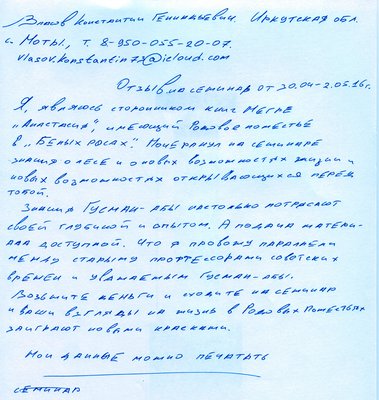 Власов Константин Геннадьевич. Иркутская обл.
с. Моты, т. 8-950-055-20-07.
vlasov.konstantin73@icloud.com
Отзыв на семинар от 30.04-2.05.16г.
Я, являюсь сторонником книг Мегре
„Анастасия", имеющий Родовое поместье
в „Белых росах". Почерпнул на семинаре
знания о лесе и о новых возможностях жизни и
новых возможностях открывающихся перед
тобой.
Знания Гусман-абы настолько потрясают
своей глубиной и опытом. А подача матери-
ала доступной. Что я провожу параллели
между старыми профессорами советских
времён и уважаемым Гусман-абы.
Возьмите деньги и сходите на семинар
и ваши взгляды на жизнь в Родовых Поместьях
заиграют новыми красками.
Мои данные можно печатать
семинар